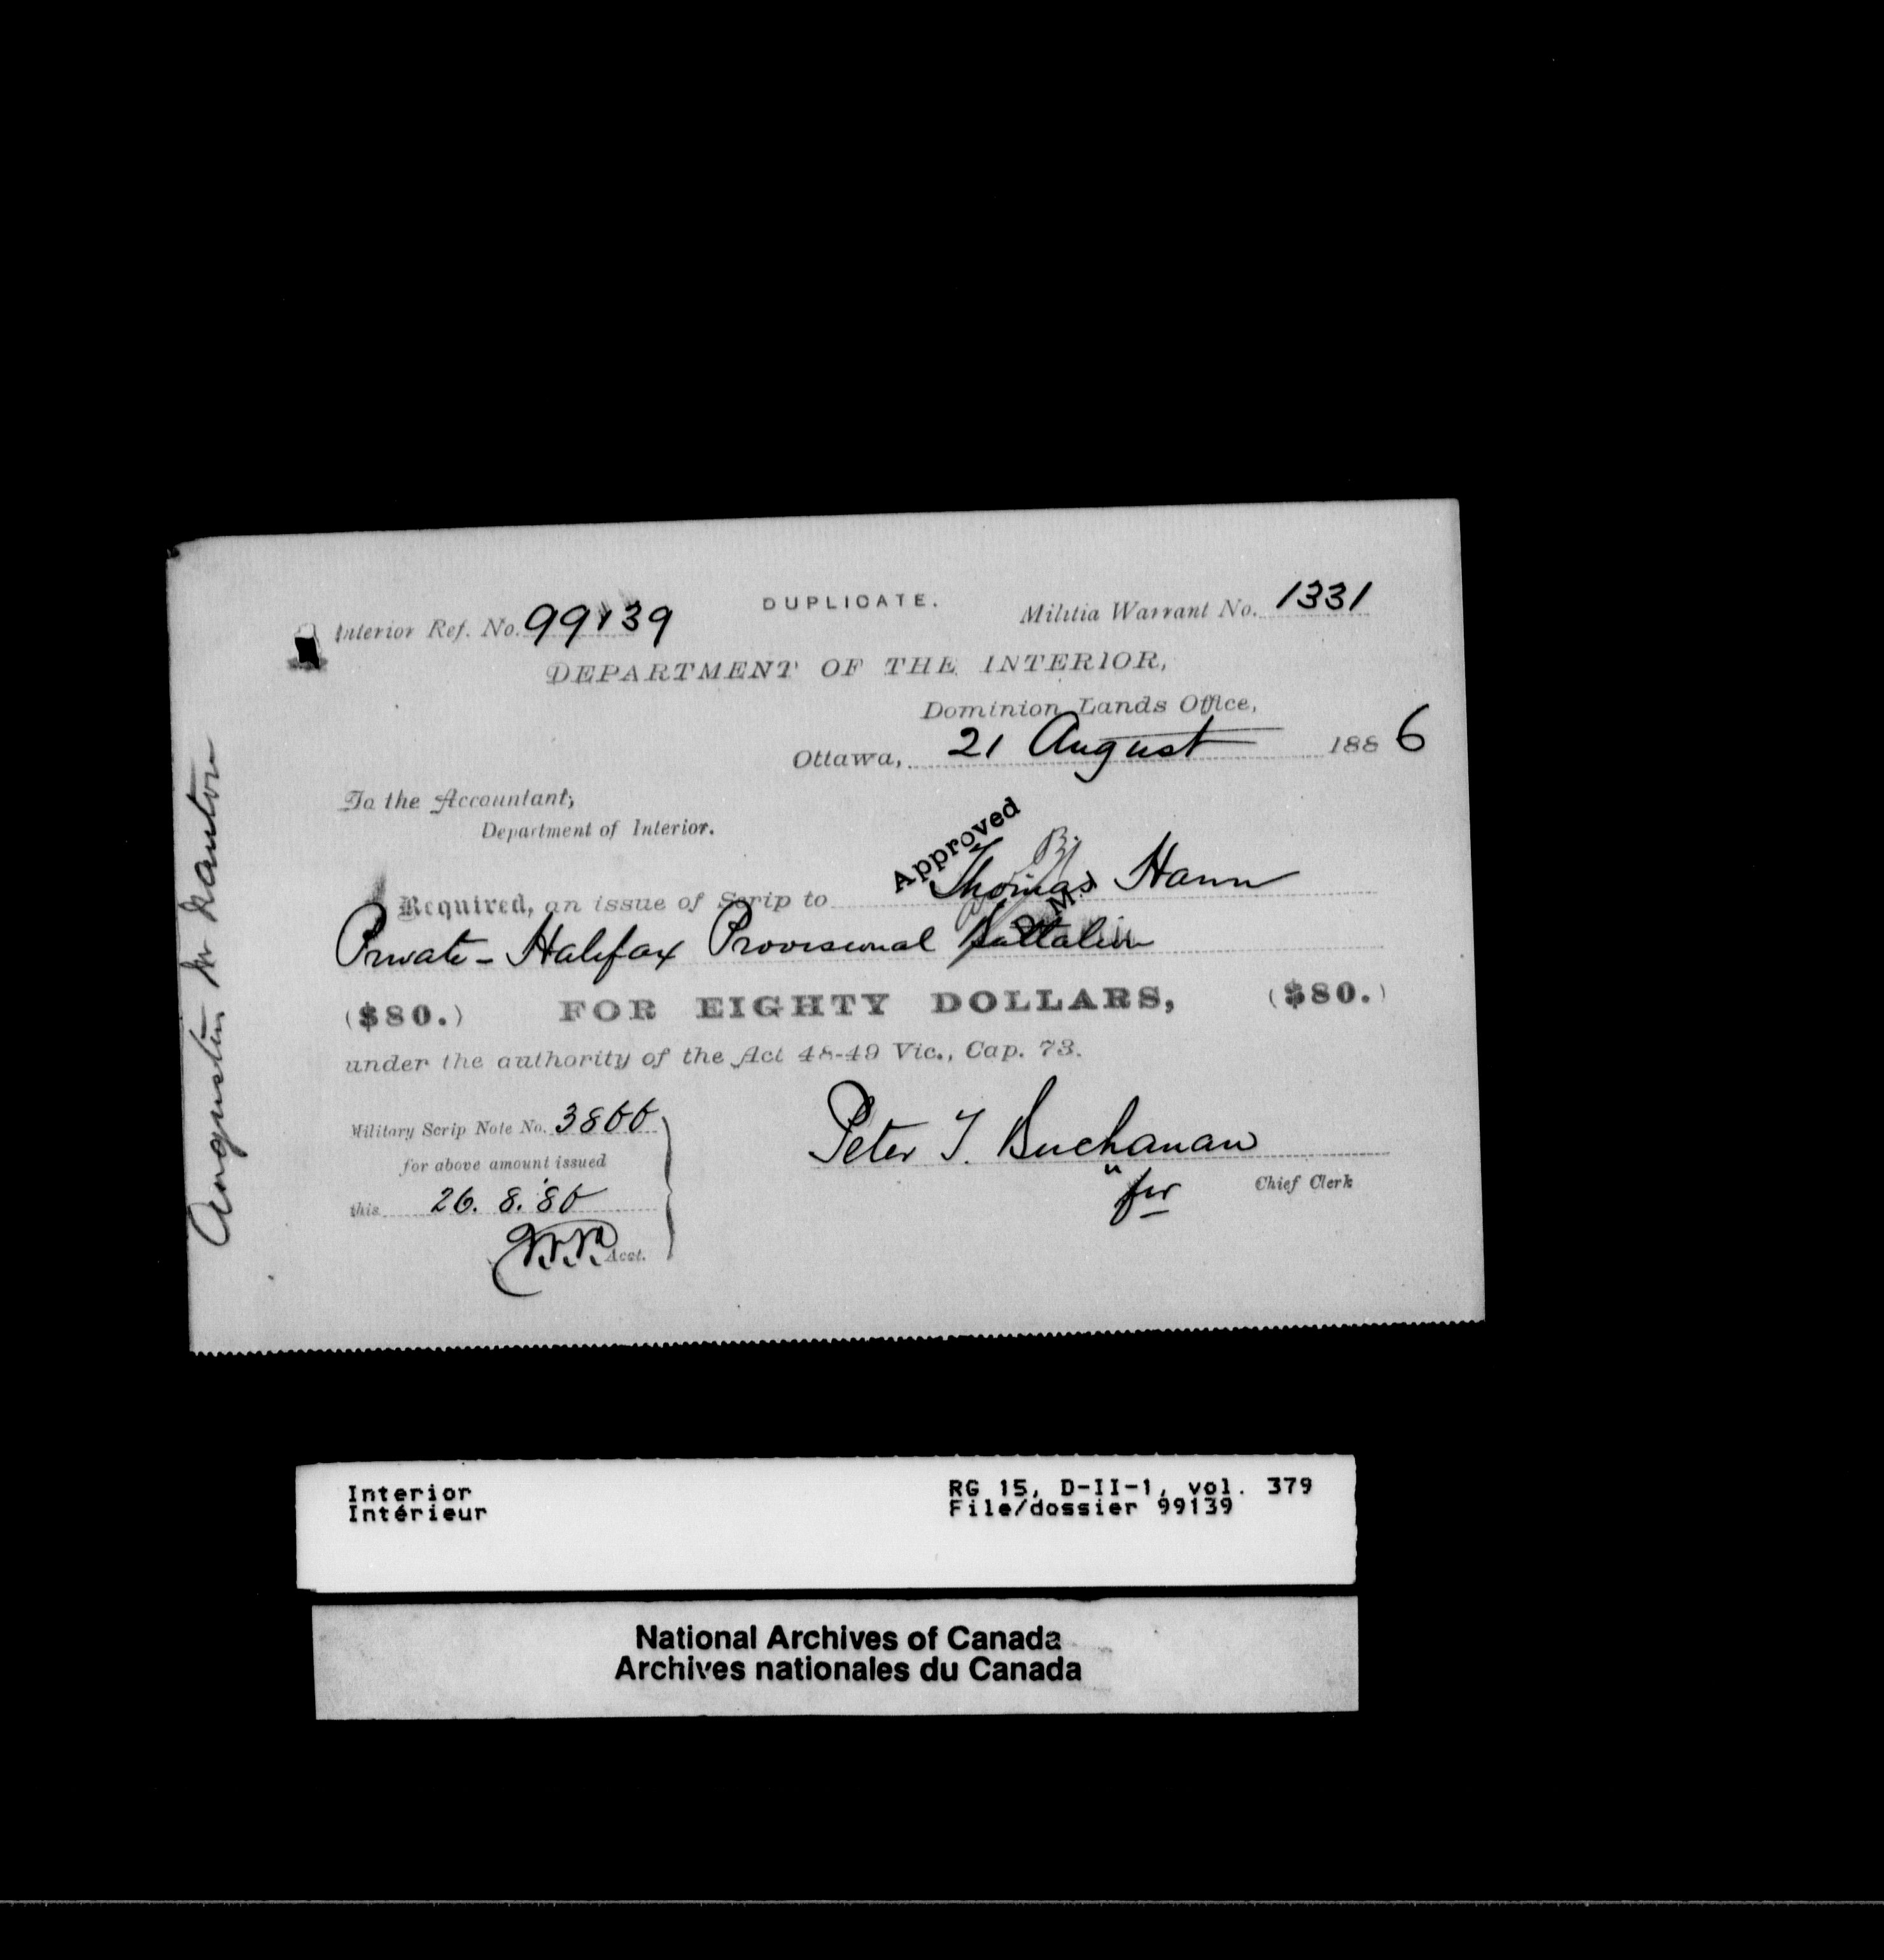 DUPLICATE.
Interior Ref. No. 99139
Militia Warrant No. 1331
DEPARTMENT OF THE INTERIOR,
Dominion Lands Office,
Ottawa, 21 August 1886
To the Accountant,
Department of Interior.
Approved
D. M.
Required, an issue of Scrip to Thomas Hann
Private - Halifax Provisional Battalion
($80.) FOR EIGHTY DOLLARS, ($80.)
under the authority of the Act 48-49 Vic., Cap. 73.
Military Scrip Note No. 3866
for above amount issued
this 26. 8. '86
Acct.
Peter T. Buchanan
for Chief Clerk
Interior
Intérieur
RG 15, D-II-1, vol. 379
File/dossier 99139
National Archives of Canada
Archives nationales du Canada